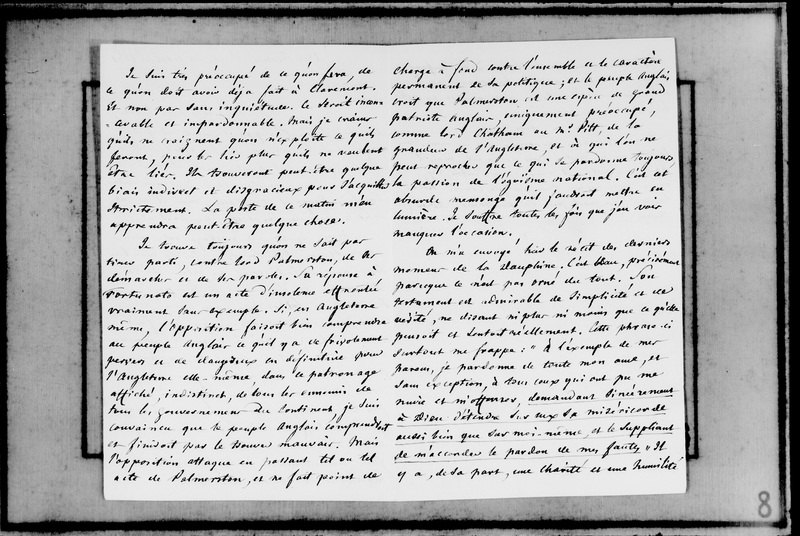 Je suis très préoccupé de ce qu'on fera, de
ce qu'on doit avoir déjà fait à Claremont.
Et non pas sans inquiétude. Ce serait incon-
-cevable et impardonnable. Mais je crains
qu'ils ne craignent qu'on n'exploite ce qu'ils
feront, pour les lier plus qu'ils ne veulent
être liés. Ils trouveront peut-être quelque
biais indirect et disgracieux pour s'acquitter
strictement. La poste de ce matin m'en
apprendra peut-être quelque chose.
Je trouve toujours qu'on ne sait pas
tirer parti, contre Lord Palmerston, de ses
démarches et de ses paroles. Sa réponse à
Fortunato est un acte d'insolence effrontée
vraiment sans exemple. Si, en Angleterre
même, l'opposition faisait bien comprendre
au peuple Anglais ce qu'il y a de frivolement
pervers et de dangereux en définitive pour
l'Angleterre elle-même dans ce patronage
affiché, indistinct, de tous les ennemis de
tous les gouvernements du Continent, je suis
convaincu que le peuple Anglais comprendrait
et finirait par le trouver mauvais. Mais
l'opposition attaque en passant tel ou tel
acte de Palmerston, et ne fait point de
charge à fond contre l'ensemble et le caractère
permanent de sa politique; et le peuple Anglais
croit que Palmerston est une espèce de grand
patriote Anglais, uniquement préoccupé,
comme Lord Chatham ou Mr. Pitt, de la
grandeur de l'Angleterre, et à qui l'on ne
peut reprocher que ce qui se pardonne toujours,
la passion de l'égoïsme national. C'est cet
absurde mensonge qu'il faudrait mettre en
lumière. Je souffre toutes les fois que j'en vois
manquer l'occasion.
On m'a envoyé hier le récit des derniers
momens de la Dauphine. C'est beau, précisément
parce que ce n'est pas orné du tout. Son
testament est admirable de simplicité et de
vérité, ne disant ni plus ni moins que ce qu'elle
pensait et sentait réellement. Cette phrase-ci
surtout me frappe: "À l'exemple de mes
parens, je pardonne de toute mon âme, et
sans exception, à tous ceux qui ont pu me
nuire et m'offenser, demandant sincèrement
à Dieu d'étendre sur eux sa miséricorde
aussi bien que sur moi-même, et le suppliant
de m'accorder le pardon de mes fautes." Il
y a, de sa part, une charité et une humilité
8